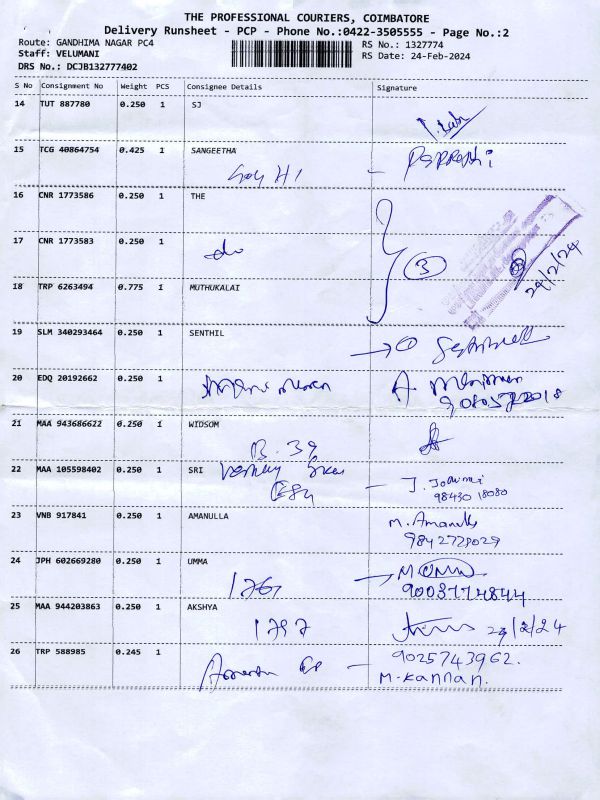 THE PROFESSIONAL COURIERS, COIMBATORE
Delivery Runsheet - PCP - Phone No.:0422-3505555 - Page No.:2
Route: GANDHIMA NAGAR PC4
RS No.: 1327774
Staff: VELUMANI
RS Date: 24-Feb-2024
DRS No.: DCJB132777402
S No Consignment No Weight PCS Consignee Details Signature
14 TUT 887780 0.250 1 SJ
15 TCG 40864754 0.425 1 SANGEETHA
16 CNR 1773586 0.250 1 THE
17 CNR 1773583 0.250 1
do 3
24/2/24
18 TRP 6263494 0.775 1 MUTHUKALAI
19 SLM 340293464 0.250 1 SENTHIL
20 EDQ 20192662 0.250 1
21 MAA 943686622 0.250 1 WIDSOM
B. 39
22 MAA 105598402 0.250 1 SRI
98430 18080
23 VNB 917841 0.250 1 AMANULLA
M. Amanulla
9842729029
24 JPH 602669280 0.250 1 UMMA
9003774844
25 MAA 944203863 0.250 1 AKSHYA
1797 24/2/24
26 TRP 588985 0.245 1
9025743962.
M-Kannan.